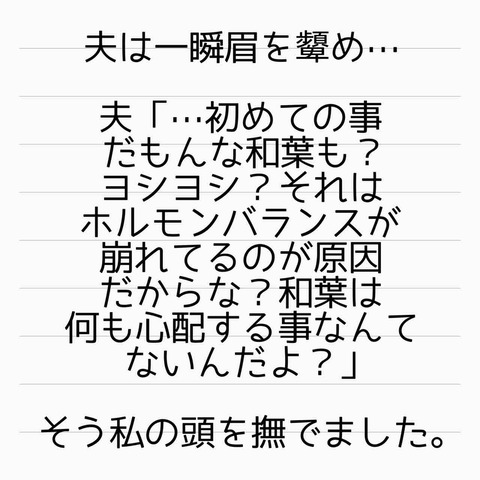 夫は一瞬眉を顰め…
夫「…初めての事
だもんな和葉も？
ヨシヨシ？それは
ホルモンバランスが
崩れてるのが原因
だからな？和葉は
何も心配する事なんて
ないんだよ？」
そう私の頭を撫でました。